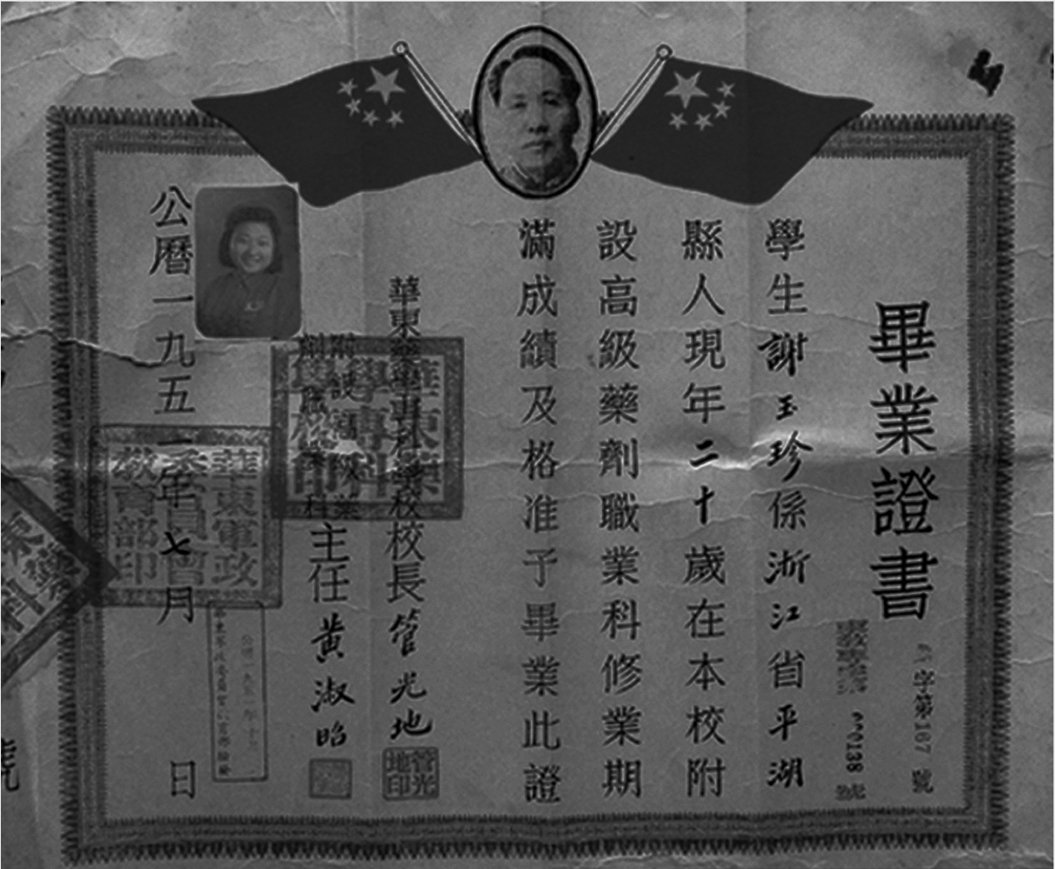 畢業證書
字第167號
000138號
學生謝玉珍係浙江省平湖
縣人現年二十歲在本校附
設高級藥劑職業科修業期
滿成績及格准予畢業此證
華東藥學專科學校校長管光地
管光地印
附設高級藥
劑職業科主任黃淑昭
華東藥學專科學校印
公曆一九五一年七月 日
華東軍政委員會教育部印